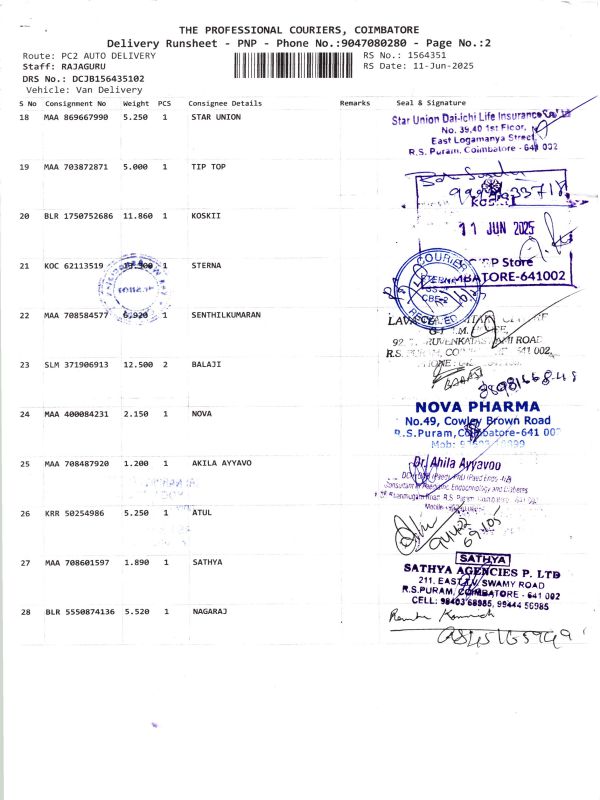 THE PROFESSIONAL COURIERS, COIMBATORE
Delivery Runsheet - PNP - Phone No.:9047080280 - Page No.:2
Route: PC2 AUTO DELIVERY
RS No.: 1564351
Staff: RAJAGURU
RS Date: 11-Jun-2025
DRS No.: DCJB156435102
Vehicle: Van Delivery
S No Consignment No Weight PCS Consignee Details Remarks Seal & Signature
18 MAA 869667990 5.250 1 STAR UNION
Star Union Dai-ichi Life Insurance
No. 39,40 1st Floor,
East Logamanya Street
R.S. Puram, Coimbatore - 641 002
19 MAA 703872871 5.000 1 TIP TOP
20 BLR 1750752686 11.860 1 KOSKII
KOSKII
11 JUN 2025
Store
COIMBATORE-641002
21 KOC 62113519 1 STERNA
COURIER
STERNA
CBE-2
RECEIVED
22 MAA 708584577 6.920 1 SENTHILKUMARAN
ROAD
R.S. PURAM, 641 002
23 SLM 371906913 12.500 2 BALAJI
24 MAA 400084231 2.150 1 NOVA
NOVA PHARMA
No.49, Cowley Brown Road
R.S.Puram, Coimbatore-641 002
Mob:
25 MAA 708487920 1.200 1 AKILA AYYAVO
Dr. Ahila Ayyavoo
Consultant in Paediatric Endocrinology and Diabetes
26 KRR 50254986 5.250 1 ATUL
27 MAA 708601597 1.890 1 SATHYA
SATHYA
SATHYA AGENCIES P. LTD
211, EAST T.V SWAMY ROAD
R.S.PURAM, COIMBATORE - 641 002
CELL: 98403 68985, 99444 56985
28 BLR 5550874136 5.520 1 NAGARAJ